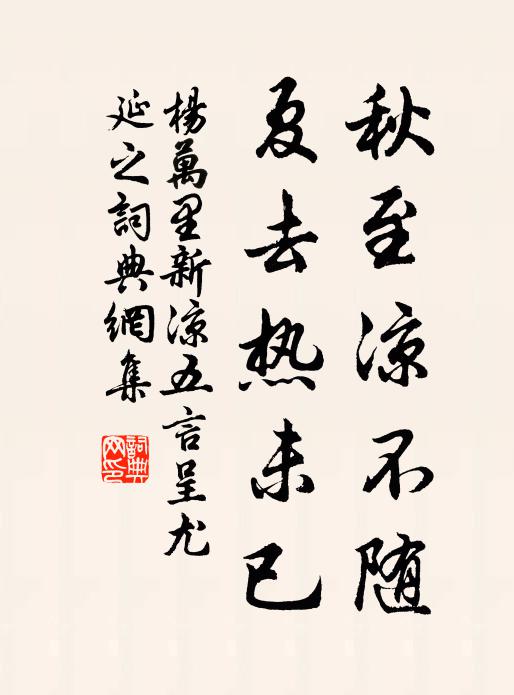 秋至凉不随
夏去热未已
楊萬里新涼五言呈尤
延之詞典網集
詞典网印